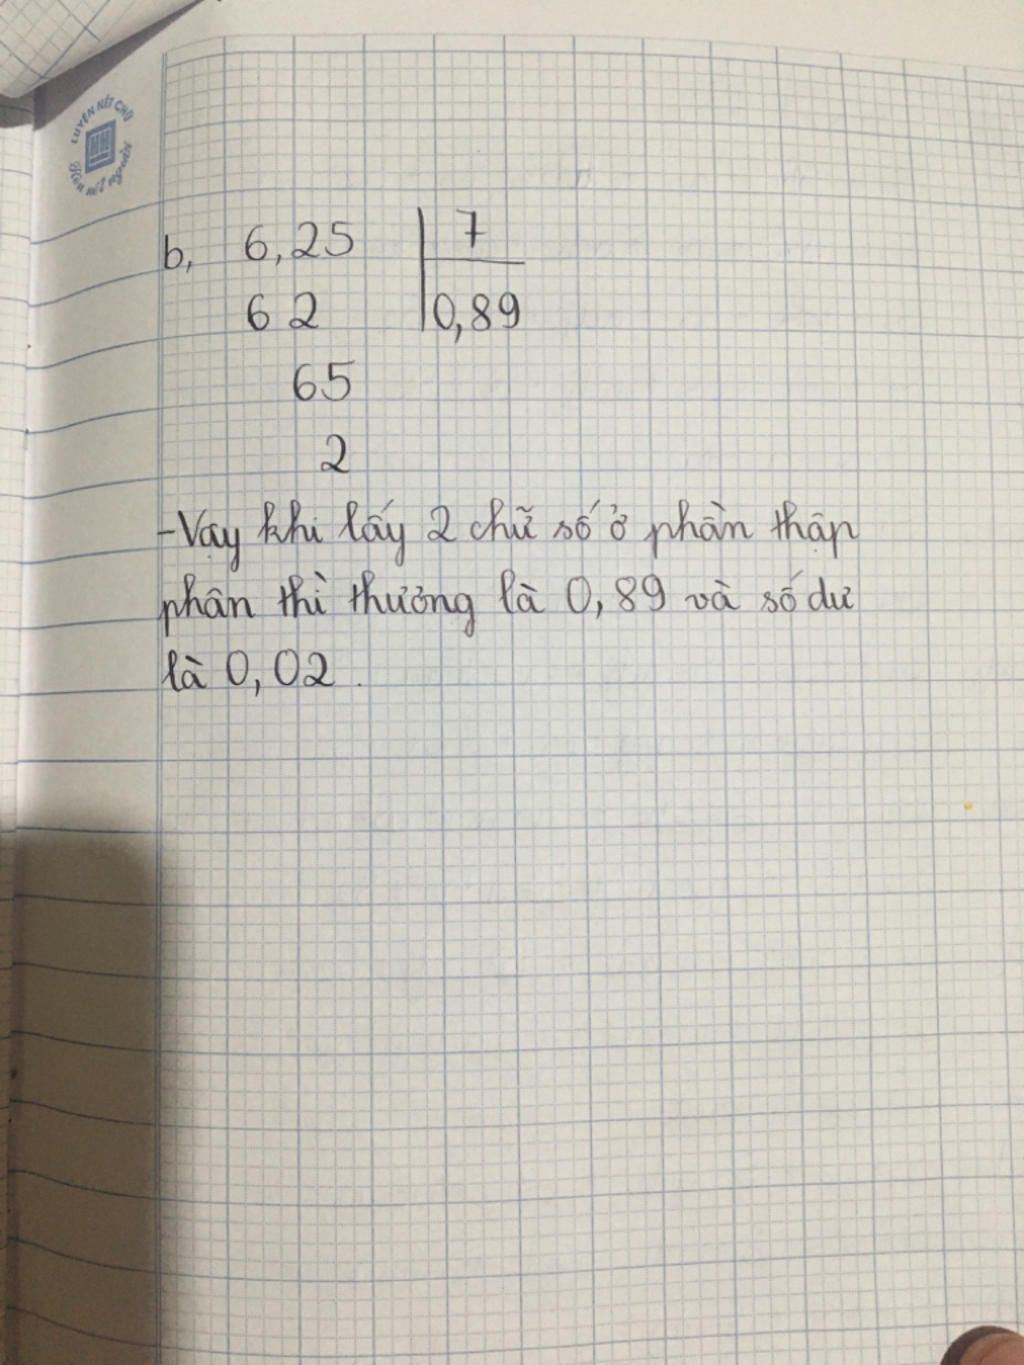 LUYỆN NÉT CHỮ
Rèn nết người
b, 6,25 7
62 0,89
65
2
-Vậy khi lấy 2 chữ số ở phần thập
phân thì thương là 0,89 và số dư
là 0,02.